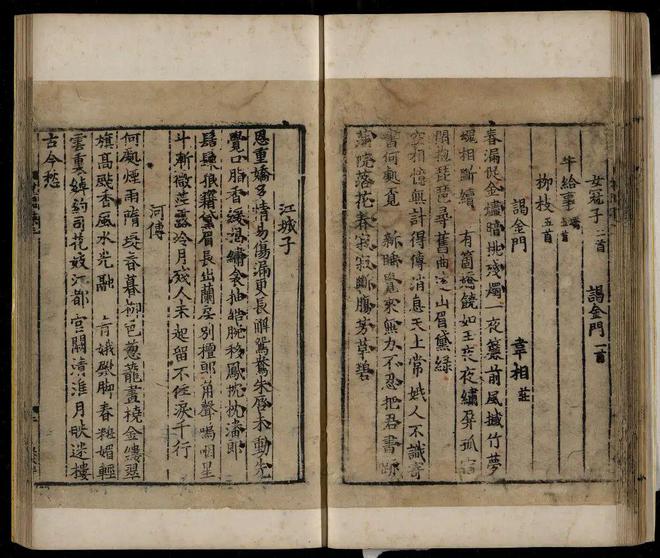 女冠子二首　謁金門一首
牛給事
柳枝五首
謁金門　韋相莊
春漏促金燼暗挑殘燭一夜簾前風撼竹夢
魂相斷續　有箇嬌饒如玉夜夜繡屏孤宿
閑抱琵琶尋舊曲遠山眉黛綠
空相憶無計得傳消息天上常娥人不識寄
書何處覓　新睡覺來無力不忍把君書跡
滿院落花春寂寂斷腸芳草碧
江城子
恩重嬌多情易傷漏更長解鴛鴦朱唇未動先
覺口脂香緩揭繡衾抽皓腕移鳳枕枕潘郎
髻鬟狼籍黛眉長出蘭房別檀郎角聲嗚咽星
斗漸微茫露冷月殘人未起留不住淚千行
河傳
何處煙雨隋堤春暮柳色蔥籠畫橈金縷翠
旗高颭香風水光融　青娥殿腳春粧媚輕
雲裏綽約司花妓江都宮闕清淮月映迷樓
古今愁